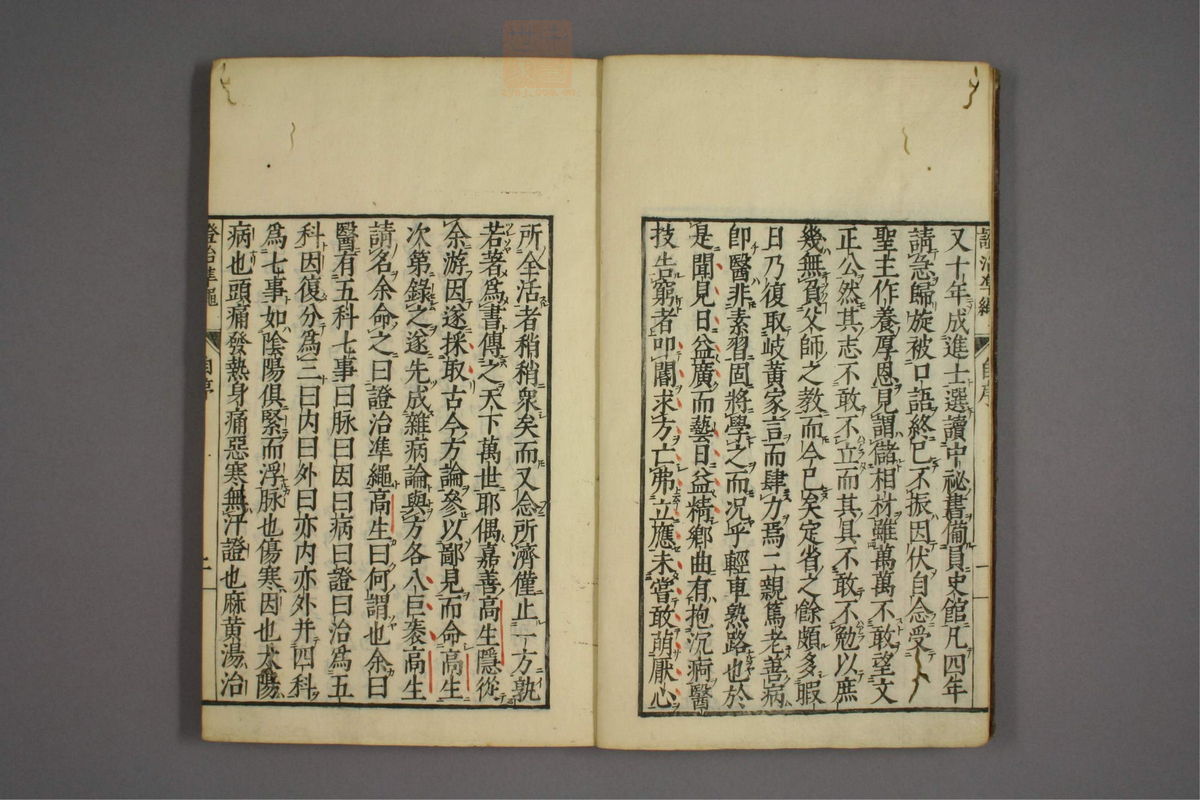 又十年成進士選讀中祕書備員史館凡四年
請急歸旋被口語終已不振因伏自念受
聖主作養厚恩見謂儲相材雖萬萬不敢望文
正公然其志不敢不立而其具不敢不勉以庶
幾無負父師之教而今已矣定省之餘頗多暇
日乃復取岐黃家言而肆力焉二親篤老善病
卽醫非素習固將學之而況乎輕車熟路也於
是聞見日益廣而藝日益精鄉曲有抱沉痾醫
技告窮者叩閽求方亡弗立應未嘗敢萌厭心
所全活者稍稍衆矣而又念所濟僅止一方孰
若著爲書傳之天下萬世耶偶嘉善高生隱從
余游因遂採取古今方論參以鄙見而命高生
次第錄之遂先成雜病論與方各八巨袠高生
請名余命之曰證治準繩高生曰何謂也余曰
醫有五科七事曰脉曰因曰病曰證曰治爲五
科因復分爲三曰内曰外曰亦内亦外并四科
爲七事如陰陽俱緊而浮脉也傷寒因也太陽
病也頭痛發熱身痛惡寒無汗證也麻黃湯治
證治準繩
自序